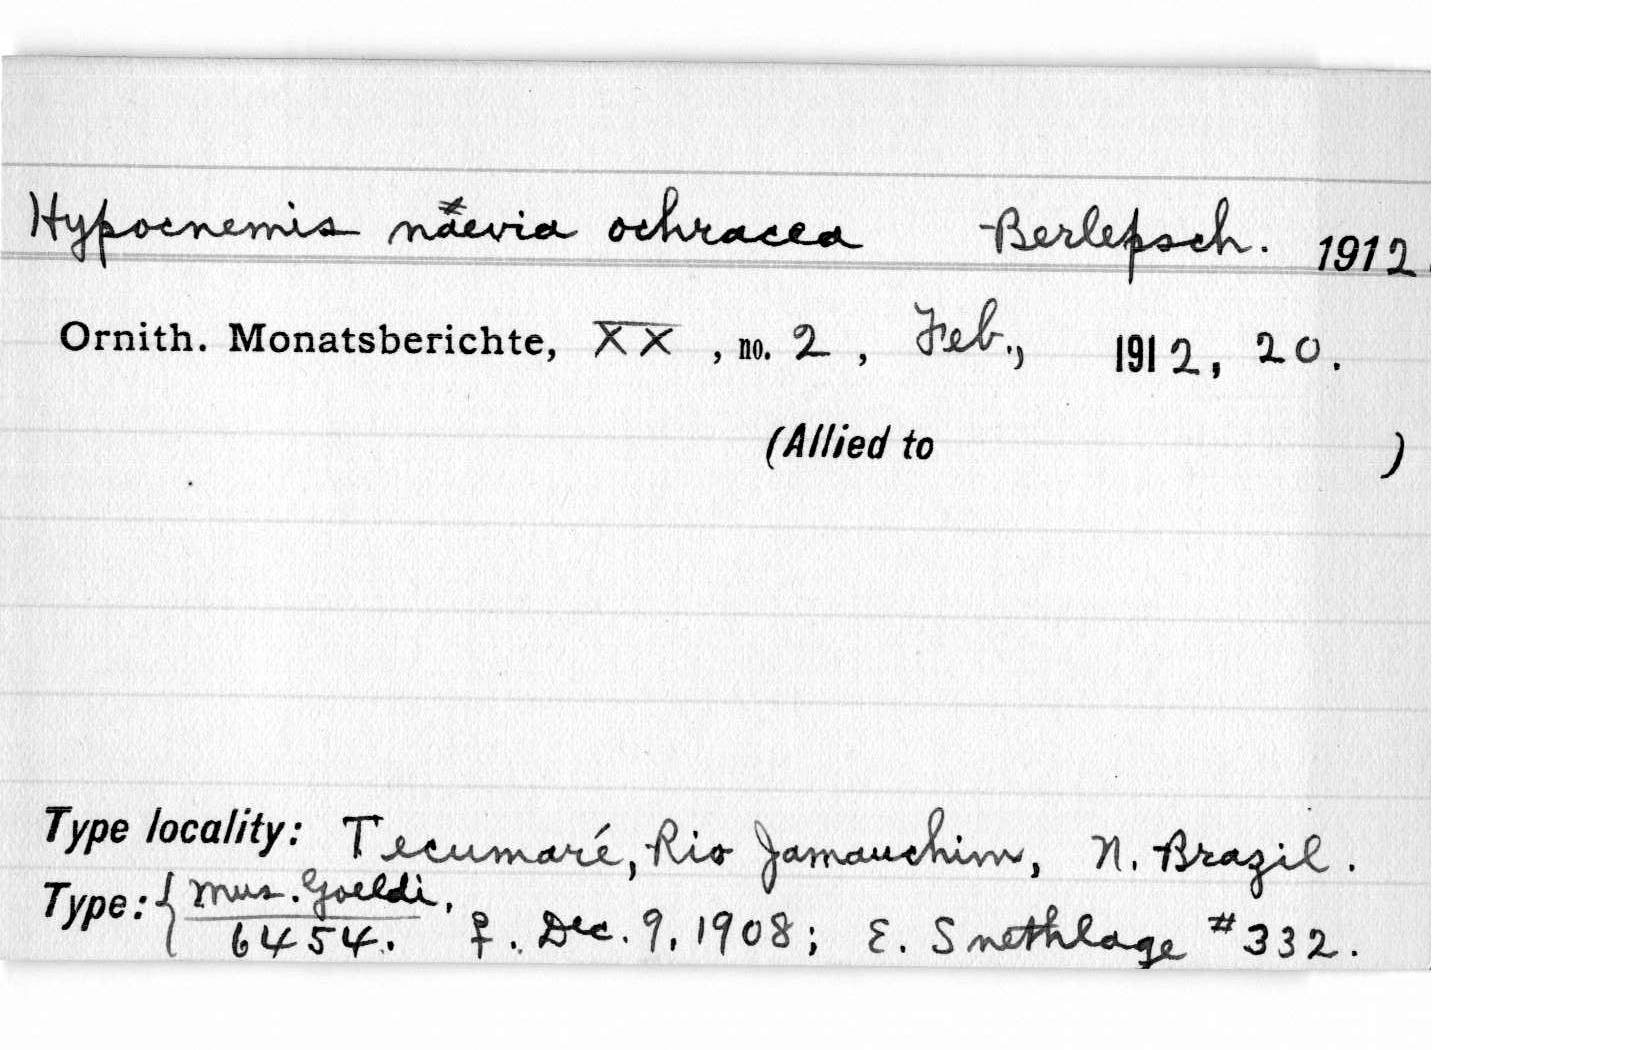 Hypocnemis näevia ochracea Berlepsch. 1912.
Ornith. Monatsberichte, XX, no. 2, Feb., 1912, 20.
(Allied to )
Type locality: Tecumaré, Rio Jamauchim, N. Brazil.
Type: { Mus. Goeldi,
6454. ♀. Dec. 9, 1908; E. Snethlage #332.